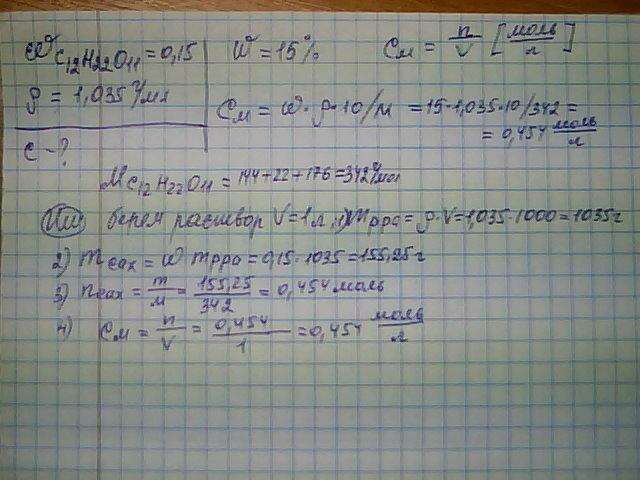 W C12H22O11 = 0,15
ρ = 1,035 г/мл
c - ?
W = 15%
Cм = n/V [моль/л]
Cм = w·ρ·10/M = 15·1,035·10/342 =
= 0,454 моль/л
M C12H22O11 = 144+22+176 = 342 г/мол
Или берем раствор V=1л 1) m рра = ρ·V = 1,035·1000 = 1035 г
2) m сах = w m рра = 0,15·1035 = 155,25 г
3) n сах = m/м = 155,25/342 = 0,454 моль
4) Cм = n/V = 0,454/1 = 0,454 моль/л